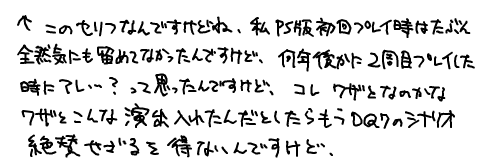 ↑ このセリフなんですけどね、私PS版初回プレイ時はたぶん
全然気にも留めてなかったんですけど、何年後かに2周目プレイした
時にアレ…？って思ったんですけど、コレワザとなのかな
ワザとこんな演出入れたんだとしたらもうDQ7のシナリオ
絶賛せざるを得ないんですけど、